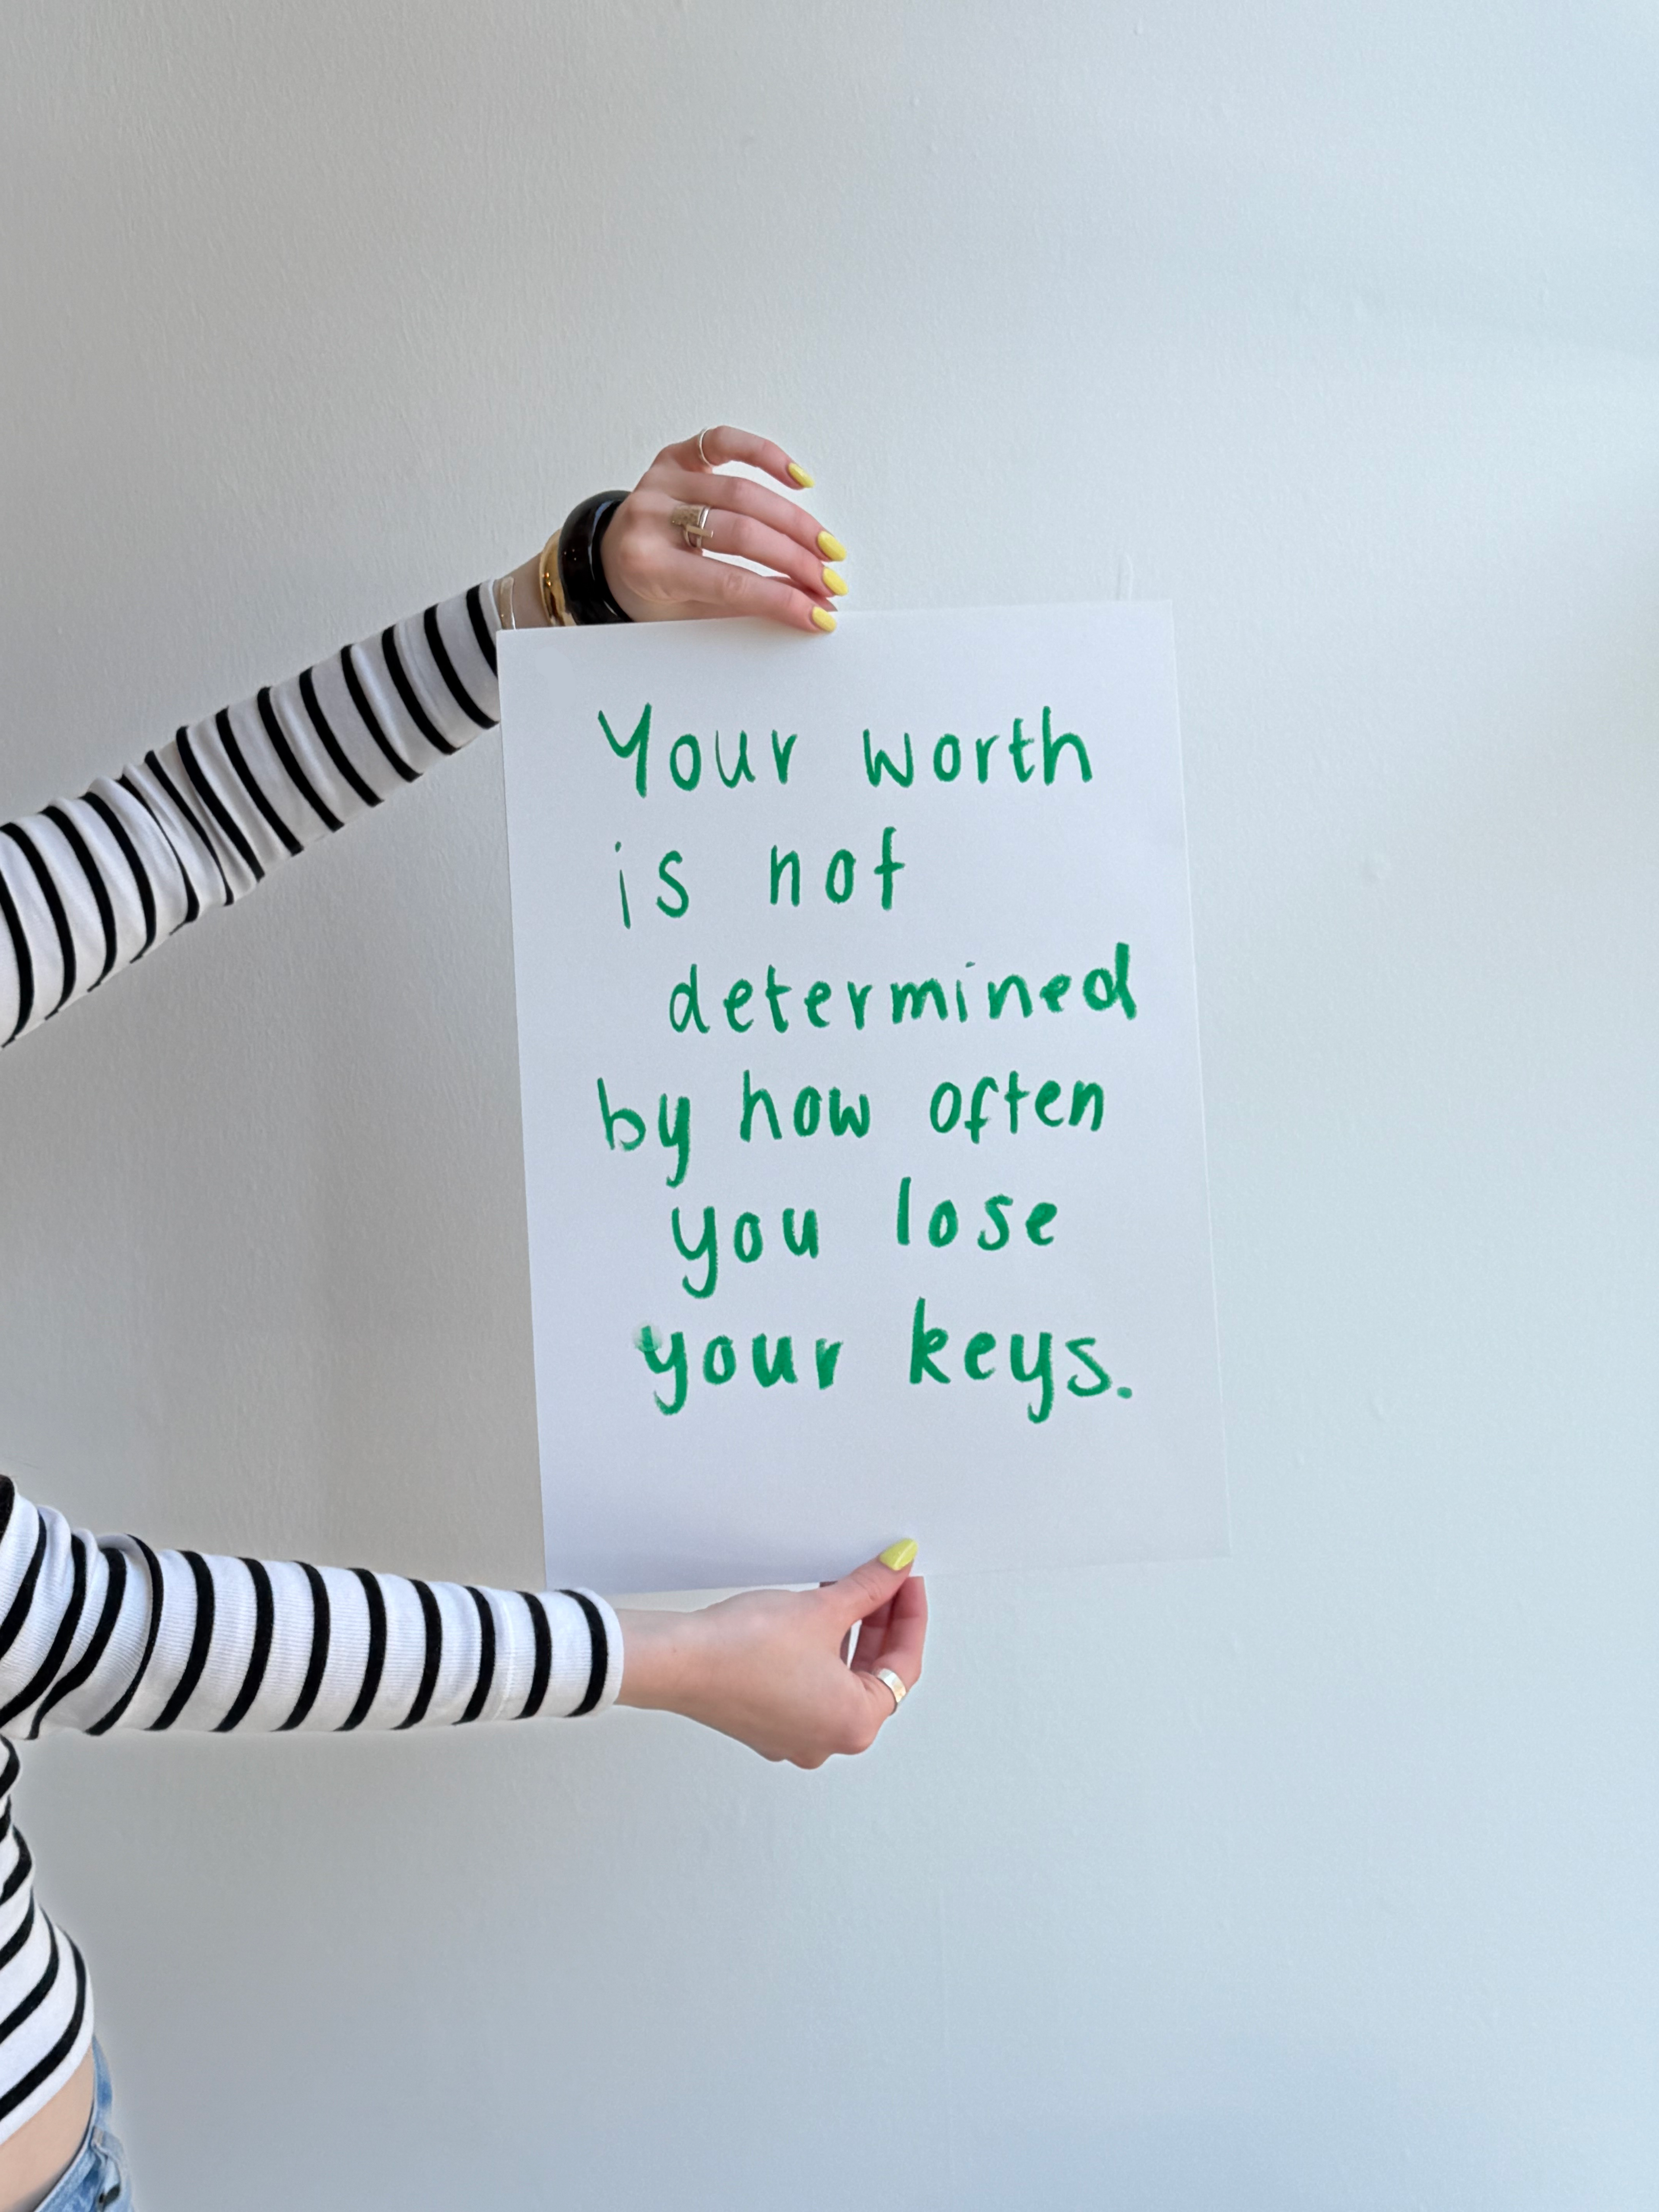 Your worth
is not
determined
by how often
you lose
your keys.